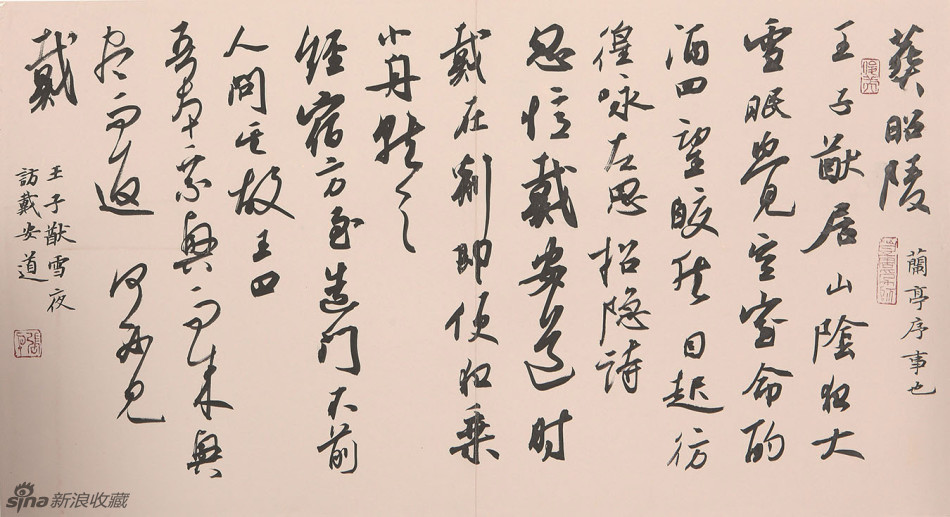 葬昭陵
蘭亭序事也
王子猷居山陰夜大
雪眠覺室命酌
酒四望皎然因起彷
徨咏左思招隐詩
忽憶戴安道时
戴在剡即便夜乘
小舟就之
經宿方至造门不前
人問其故王曰
吾本乘興而来興
尽而返何必見
戴
王子猷雪夜
訪戴安道
sina新浪收藏